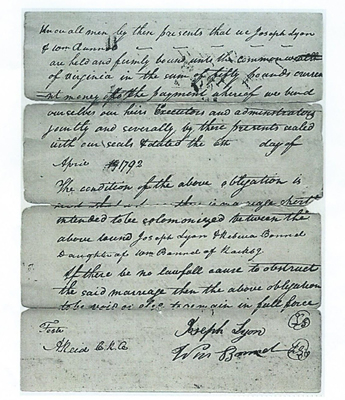 Know all men by these presents that we Joseph Lyon
& Wm Bunnel
are held and firmly bound unto the commonwealth
of Virginia in the sum of fifty pounds curre
nt money the payment whereof we bend
ourselves our heirs Executors and administrators
jointly and severally by these presents sealed
with our seals & dated the 6th day of
April 1792
The condition of the above obligation is
there is a marriage shortly
intended to be solomonized between the
above bound Joseph Lyon & Rebecca Bonnel
Daughter of Wm Bonnel of
If there be no lawfull cause to obstruct
the said marriage then the above obligation
to be void or else to remain in full force
Teste
Joseph Lyon
A Reid C.R.C
Wm Bonnel